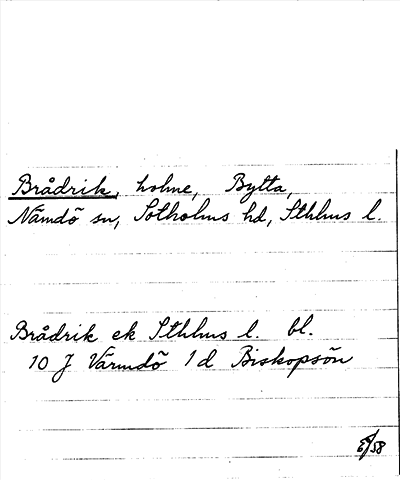 Brådrik, holme, Bytta,
Nämdö sn, Sotholms hd, Sthlms l.
Brådrik ek Sthlms l. bl.
10 J Värmdö 1 d Biskopsön
58